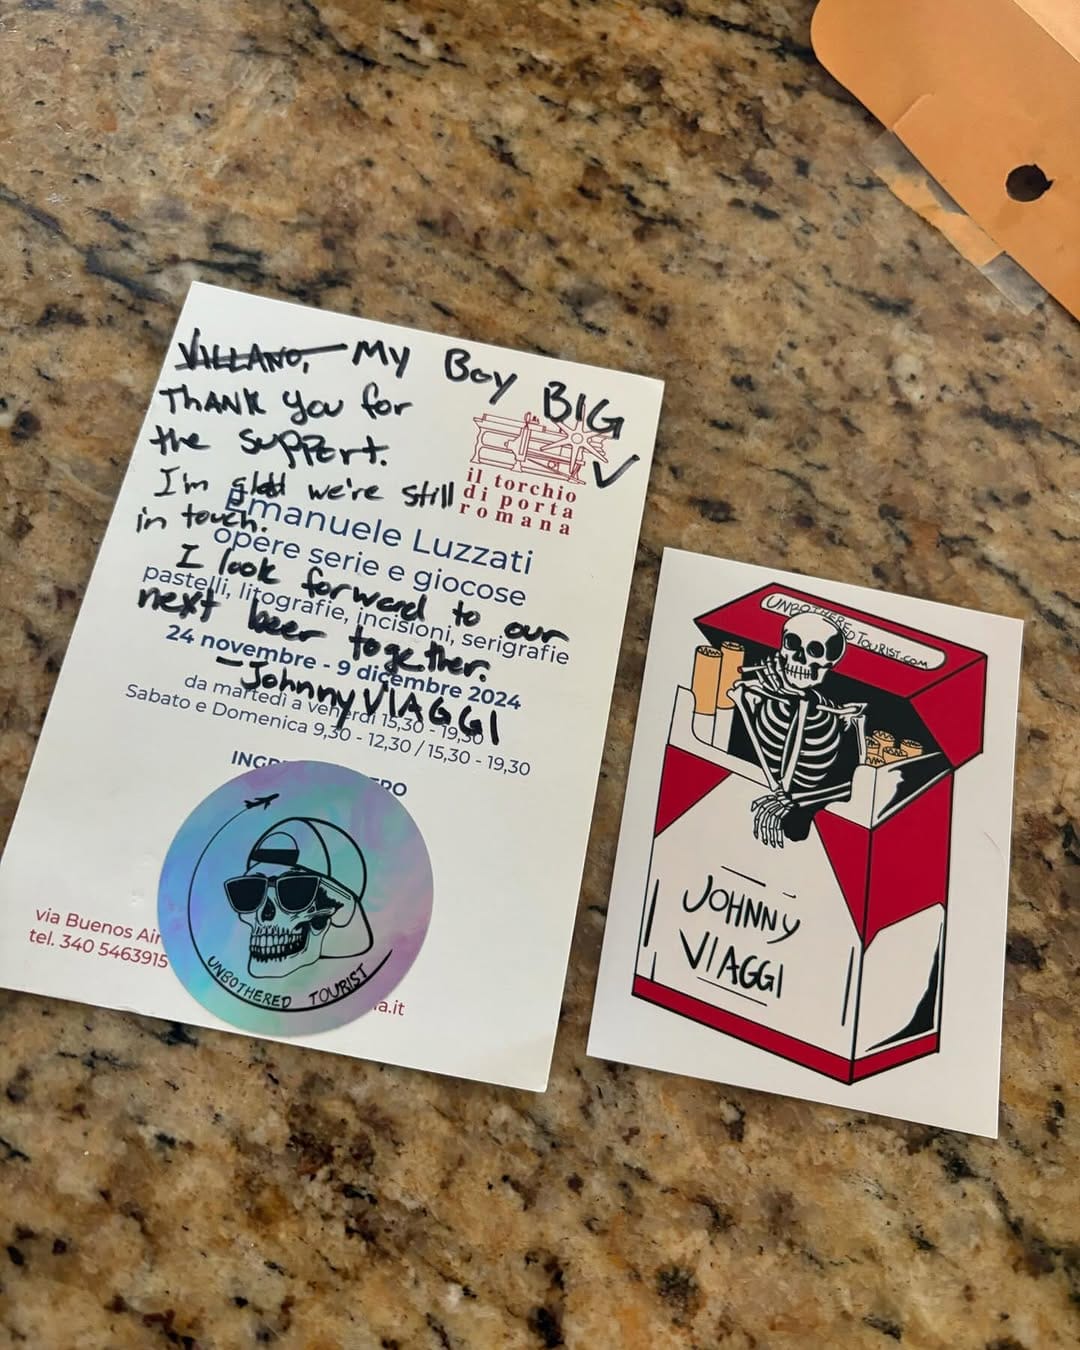 VILLANO, MY BOY BIG V
THANK you for
the support.
I'm glad we're still
in touch.
I look forward to our
next beer together.
- Johnny VIAGGI
il torchio
di porta
romana
Emanuele Luzzati
opere serie e giocose
pastelli, litografie, incisioni, serigrafie
24 novembre - 9 dicembre 2024
da martedì a venerdì 15,30 - 19,30
Sabato e Domenica 9,30 - 12,30 / 15,30 - 19,30
via Buenos Air
tel. 340 5463915
a.it
UNBOTHERED TOURIST
UNBOTHEREDTOURIST.COM
JOHNNY
VIAGGI